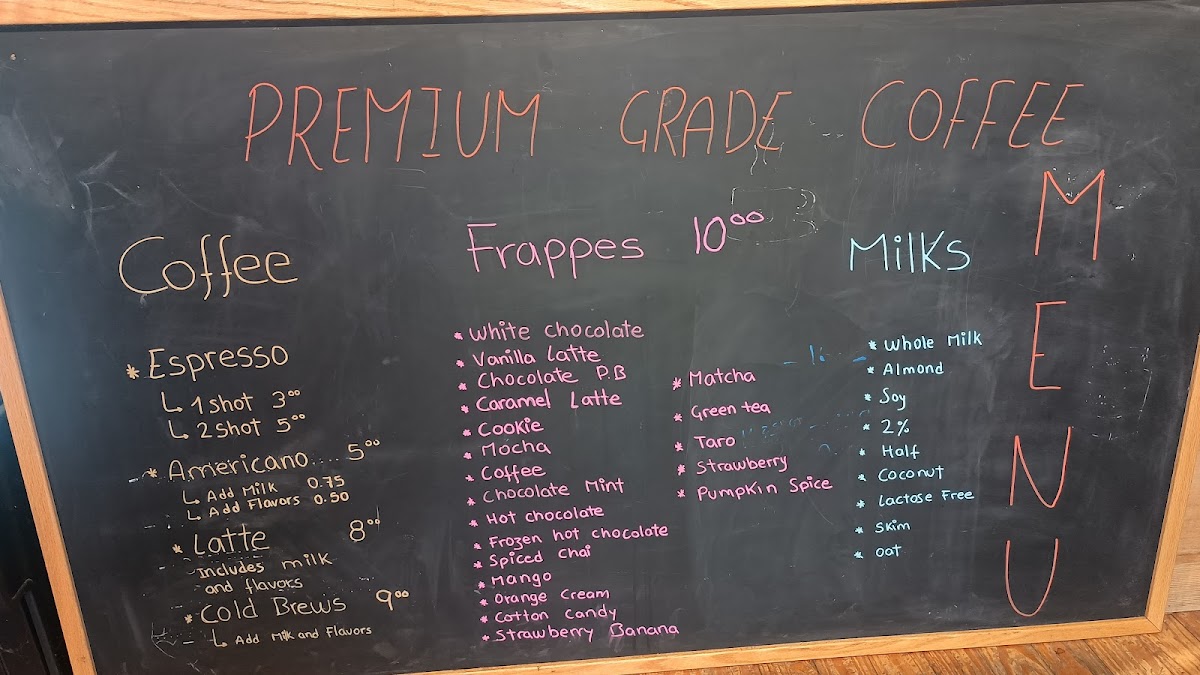 PREMIUM GRADE COFFEE
MENU
Coffee
* Espresso
↳ 1 shot 3.00
↳ 2 shot 5.00
* Americano .... 5.00
↳ Add Milk 0.75
↳ Add Flavors 0.50
* Latte 8.00
Includes milk
and flavors
* Cold Brews 9.00
↳ Add Milk and Flavors
Frappes 10.00
* White chocolate
* Vanilla Latte
* Chocolate P.B
* Caramel Latte
* Cookie
* Mocha
* Coffee
* Chocolate Mint
* Hot chocolate
* Frozen hot chocolate
* Spiced Chai
* Mango
* Orange Cream
* Cotton Candy
* Strawberry Banana
* Matcha
* Green tea
* Taro
* Strawberry
* Pumpkin Spice
Milks
* Whole Milk
* Almond
* Soy
* 2%
* Half
* Coconut
* Lactose Free
* Skim
* oat